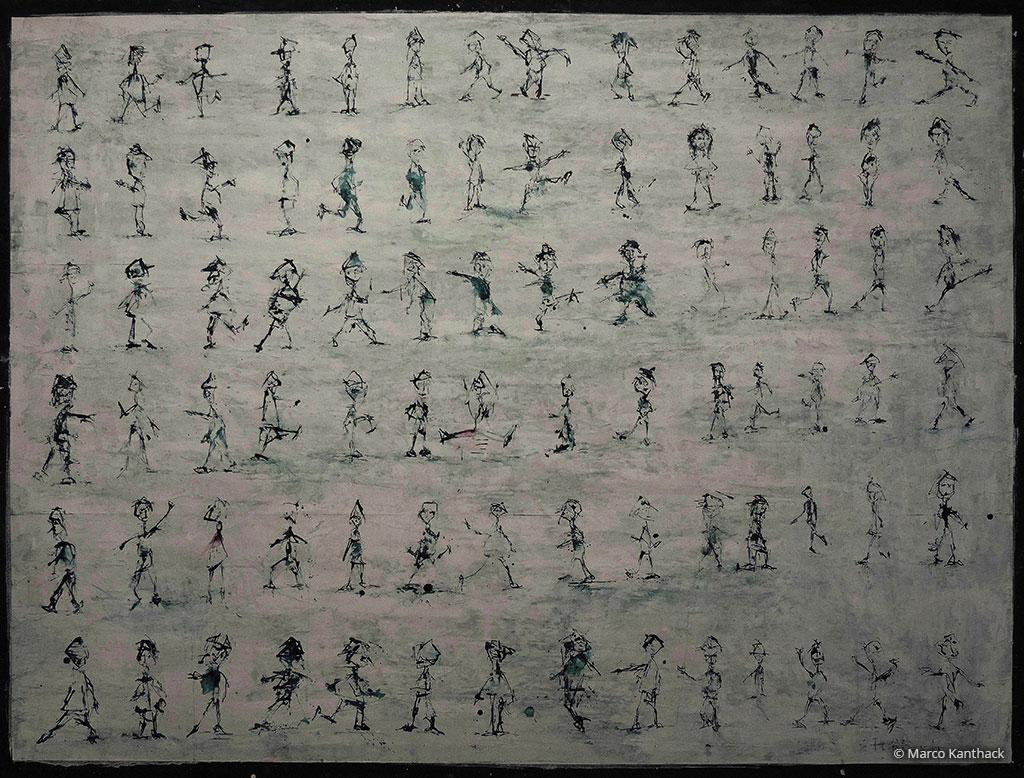 © Marco Kanthack